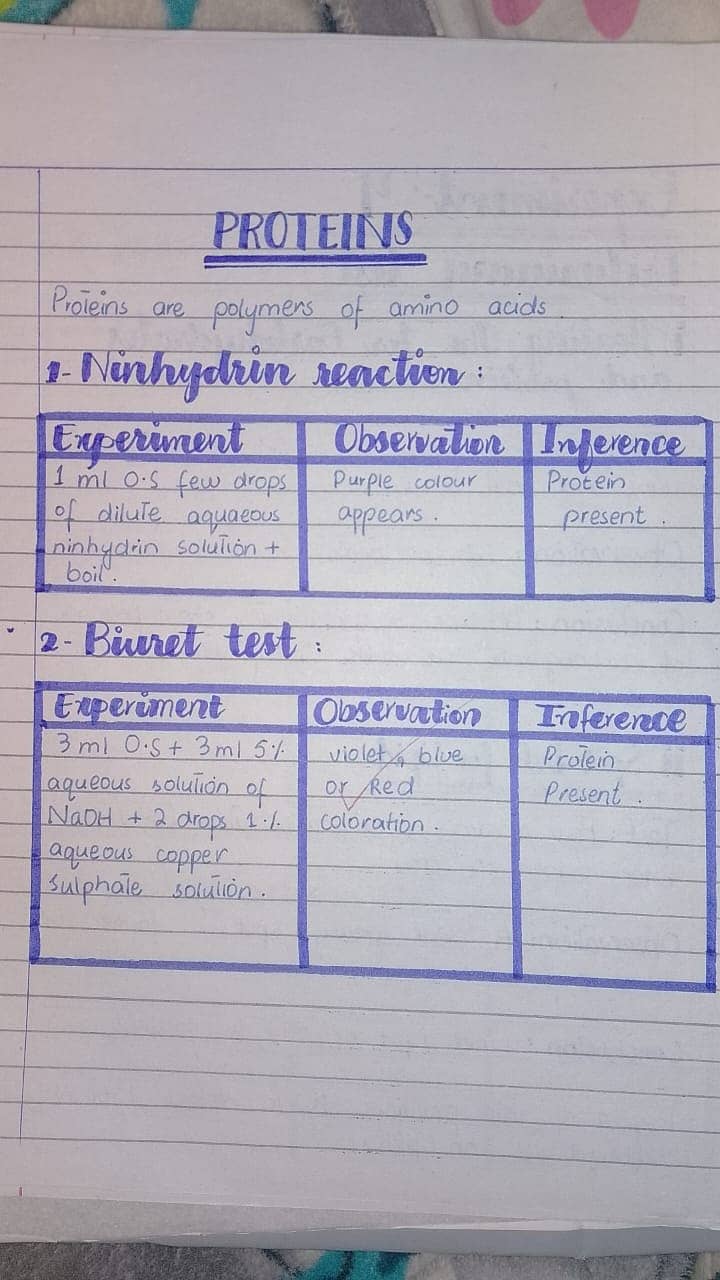 PROTEINS
Proteins are polymers of amino acids.
1- Ninhydrin reaction :
Experiment Observation Inference
1 ml O.S few drops
of dilute aquaeous
ninhydrin solution +
boil.
Purple colour
appears.
Protein
present.
2- Biuret test :
Experiment Observation Inference
3 ml O.S + 3 ml 5%
aqueous solution of
NaOH + 2 drops 1%
aqueous copper
sulphate solution.
violet, blue
or Red
coloration.
Protein
Present.